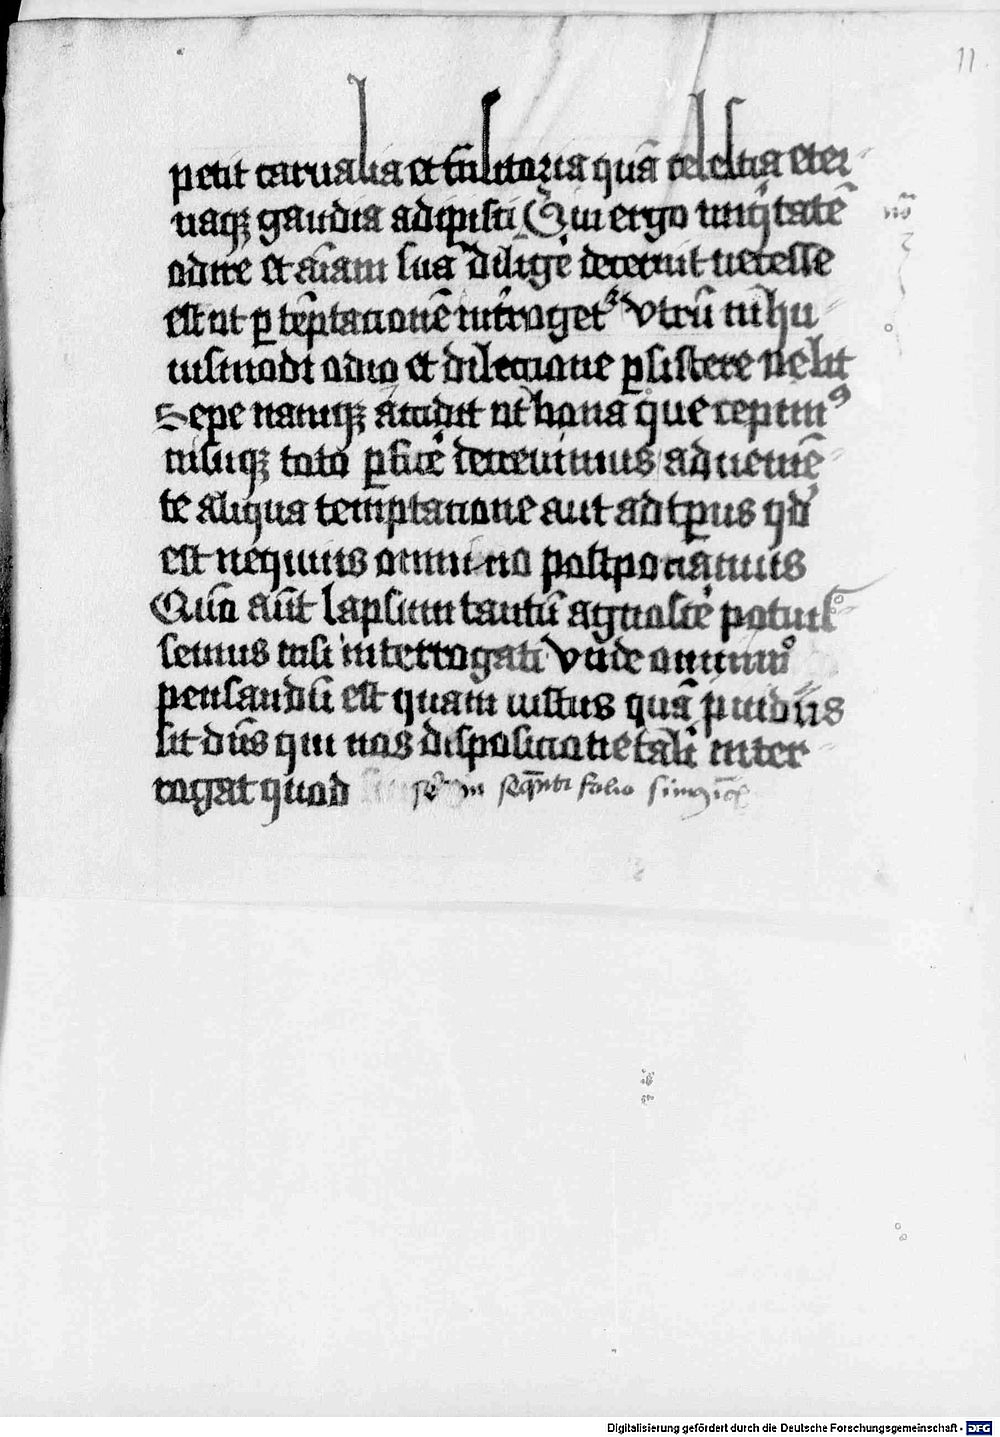 11
petit carnalia et trãsitoria quã celestia eter-
naq; gaudia adipisci Qui ergo iniq̃tatẽ
odire et aĩam suã diligẽ decernit necesse
est ut ꝑ tẽptationẽ int̃roget᷑ Vtrũ in hu-
iusmodi odio et dilectione ꝑsistere velit
Sepe namq; accidit ut bona que cepimꝰ
nisuq; toto ꝑficẽ decrevimus adveniẽ-
te aliqua temptatione aut ad tp̃us qd̃
est nequius omnino postponamus
Qũo aũt lapsum tantũ agnoscẽ potuis-
semus nisi interrogati Vnde omnimo
pensandũ est quam iustus quã ꝓvidus
sit dñs qui nos dispositione tali inter-
rogat quod in seq̃nti folio
Digitalisierung gefördert durch die Deutsche Forschungsgemeinschaft - DFG